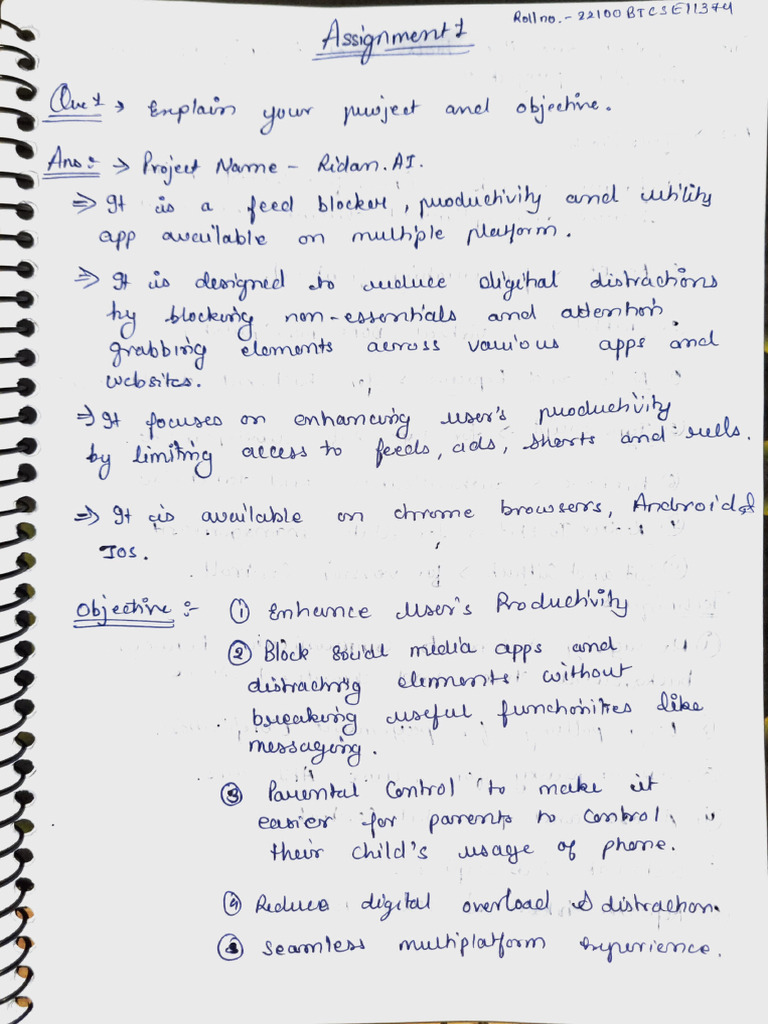 Roll no. - 22100BTCSE11374
Assignment 1
Que 1 → Explain your project and objective.
Ans :- → Project Name - Ridan.AI.
⇒ It is a feed blocker, productivity and utility
app available on multiple platform.
⇒ It is designed to reduce digital distractions
by blocking non-essentials and attention
grabbing elements across various apps and
websites.
⇒ It focuses on enhancing user's productivity
by limiting access to feeds, ads, shorts and reells.
⇒ It is available on chrome browsers, Android &
IOS.
Objective :- ① Enhance User's Productivity
② Block social media apps and
distracting elements without
breaking useful functionities like
messaging.
③ Parental Control to make it
easier for parents to control
their child's usage of phone.
④ Reduce digital overload & distraction.
⑤ Seamless multiplatform experience.